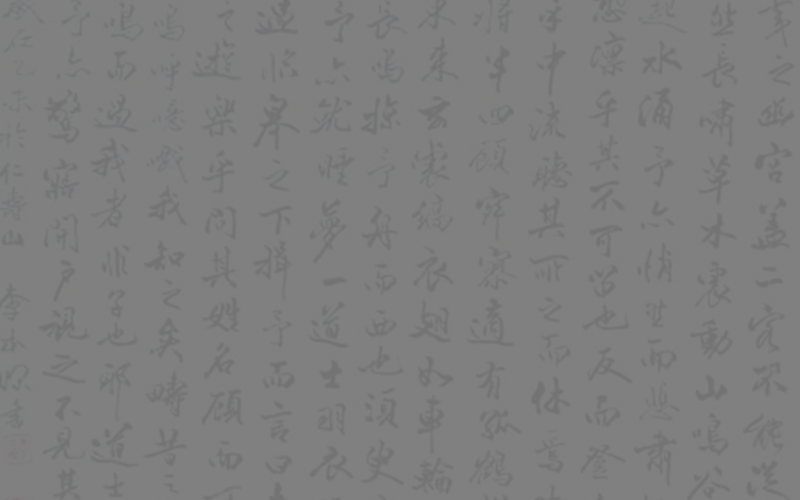 幸之幽宫盖二客不能從
然長嘯草木震動山鳴谷
起水涌予亦悄然而悲肅
恐凛乎其不可留也反而登
乎中流聽其所止而休焉
將半四顧寂寥適有孤鶴
東來玄裳縞衣翅如車輪
長鳴掠予舟而西也須臾
予亦就睡夢一道士羽衣
過臨皋之下揖予而言曰
之遊樂乎問其姓名顧而
嗚呼噫嘻我知之矣疇昔之
鳴而過我者非子也耶道士
予亦驚寤開戶視之不見其
於仁壽山 李